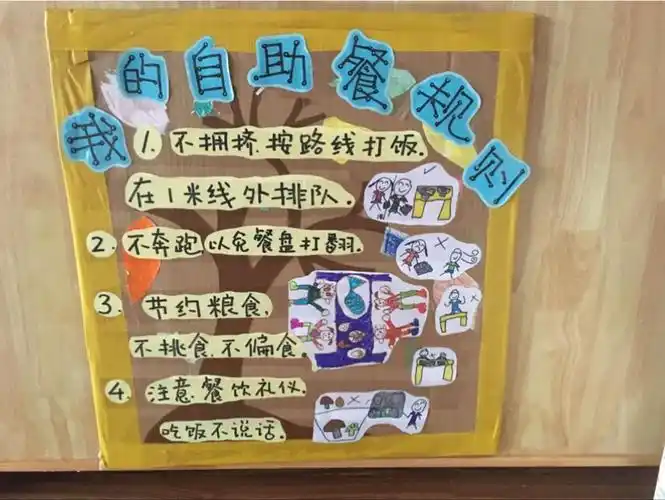 我的自助餐规则
1. 不拥挤.按路线打饭.
在1米线外排队.
2. 不奔跑,以免餐盘打翻.
3. 节约粮食,
不挑食.不偏食.
4. 注意餐饮礼仪.
吃饭不说话.